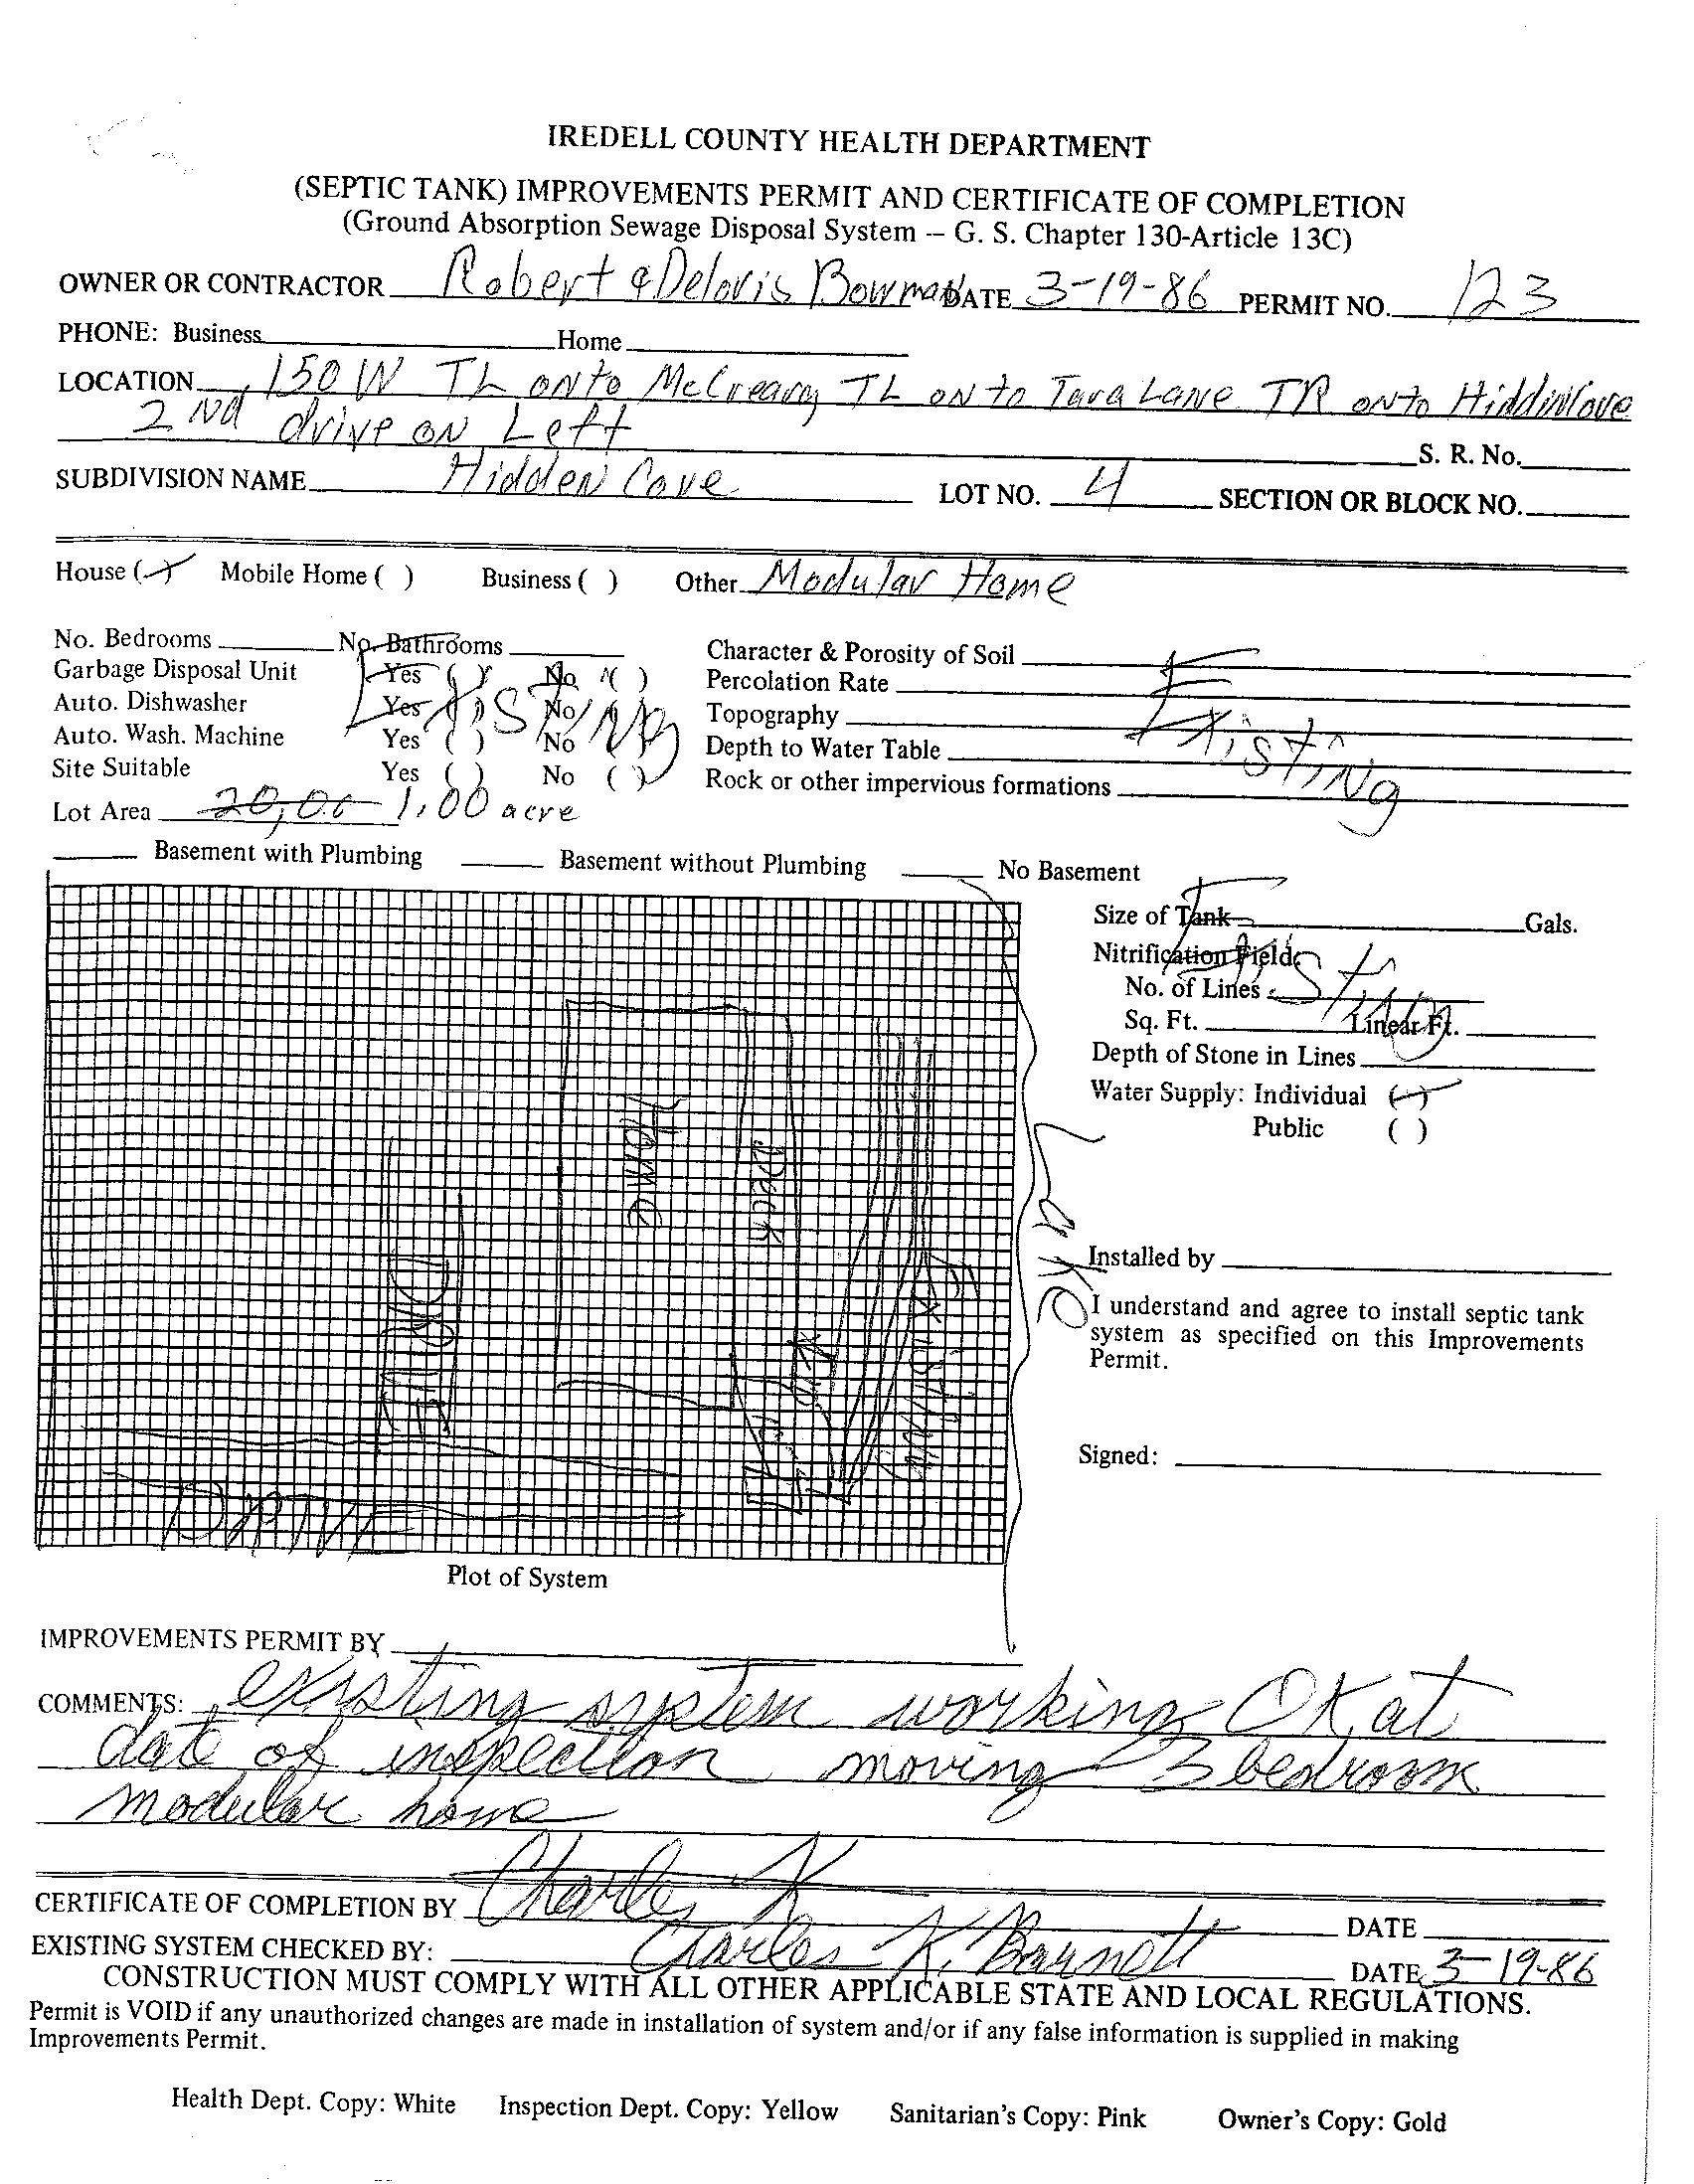 IREDELL COUNTY HEALTH DEPARTMENT
(SEPTIC TANK) IMPROVEMENTS PERMIT AND CERTIFICATE OF COMPLETION
(Ground Absorption Sewage Disposal System -- G. S. Chapter 130-Article 13C)
OWNER OR CONTRACTOR Robert & Deloris Bowman DATE 3-19-86 PERMIT NO. 123
PHONE: Business Home
LOCATION 150 W TL onto McCreary TL onto Tara Lane TR onto Hiddin Cove
2nd drive on Left
S. R. No.
SUBDIVISION NAME Hidden Cove LOT NO. 4 SECTION OR BLOCK NO.
House ( ) Mobile Home ( ) Business ( ) Other Modular Home
No. Bedrooms No. Bathrooms Character & Porosity of Soil
Garbage Disposal Unit Yes ( ) No ( ) Percolation Rate
Auto. Dishwasher Yes ( ) No ( ) Topography
Existing Existing
Auto. Wash. Machine Yes ( ) No ( ) Depth to Water Table
Site Suitable Yes ( ) No ( ) Rock or other impervious formations
Lot Area 20,00 1.00 acre
Basement with Plumbing Basement without Plumbing No Basement
Size of Tank Gals.
Nitrification Field:
Existing
No. of Lines
Sq. Ft. Linear Ft.
Depth of Stone in Lines
Water Supply: Individual ( )
Public ( )
Home
Deck
Lake
Existing
Drive
Plot of System
Installed by
I understand and agree to install septic tank
system as specified on this Improvements
Permit.
Signed:
IMPROVEMENTS PERMIT BY
COMMENTS: existing system working OK at
date of inspection moving 3 bedroom
modular home
CERTIFICATE OF COMPLETION BY Charles K DATE
EXISTING SYSTEM CHECKED BY: Charles K. Barnett DATE 3-19-86
CONSTRUCTION MUST COMPLY WITH ALL OTHER APPLICABLE STATE AND LOCAL REGULATIONS.
Permit is VOID if any unauthorized changes are made in installation of system and/or if any false information is supplied in making
Improvements Permit.
Health Dept. Copy: White Inspection Dept. Copy: Yellow Sanitarian's Copy: Pink Owner's Copy: Gold